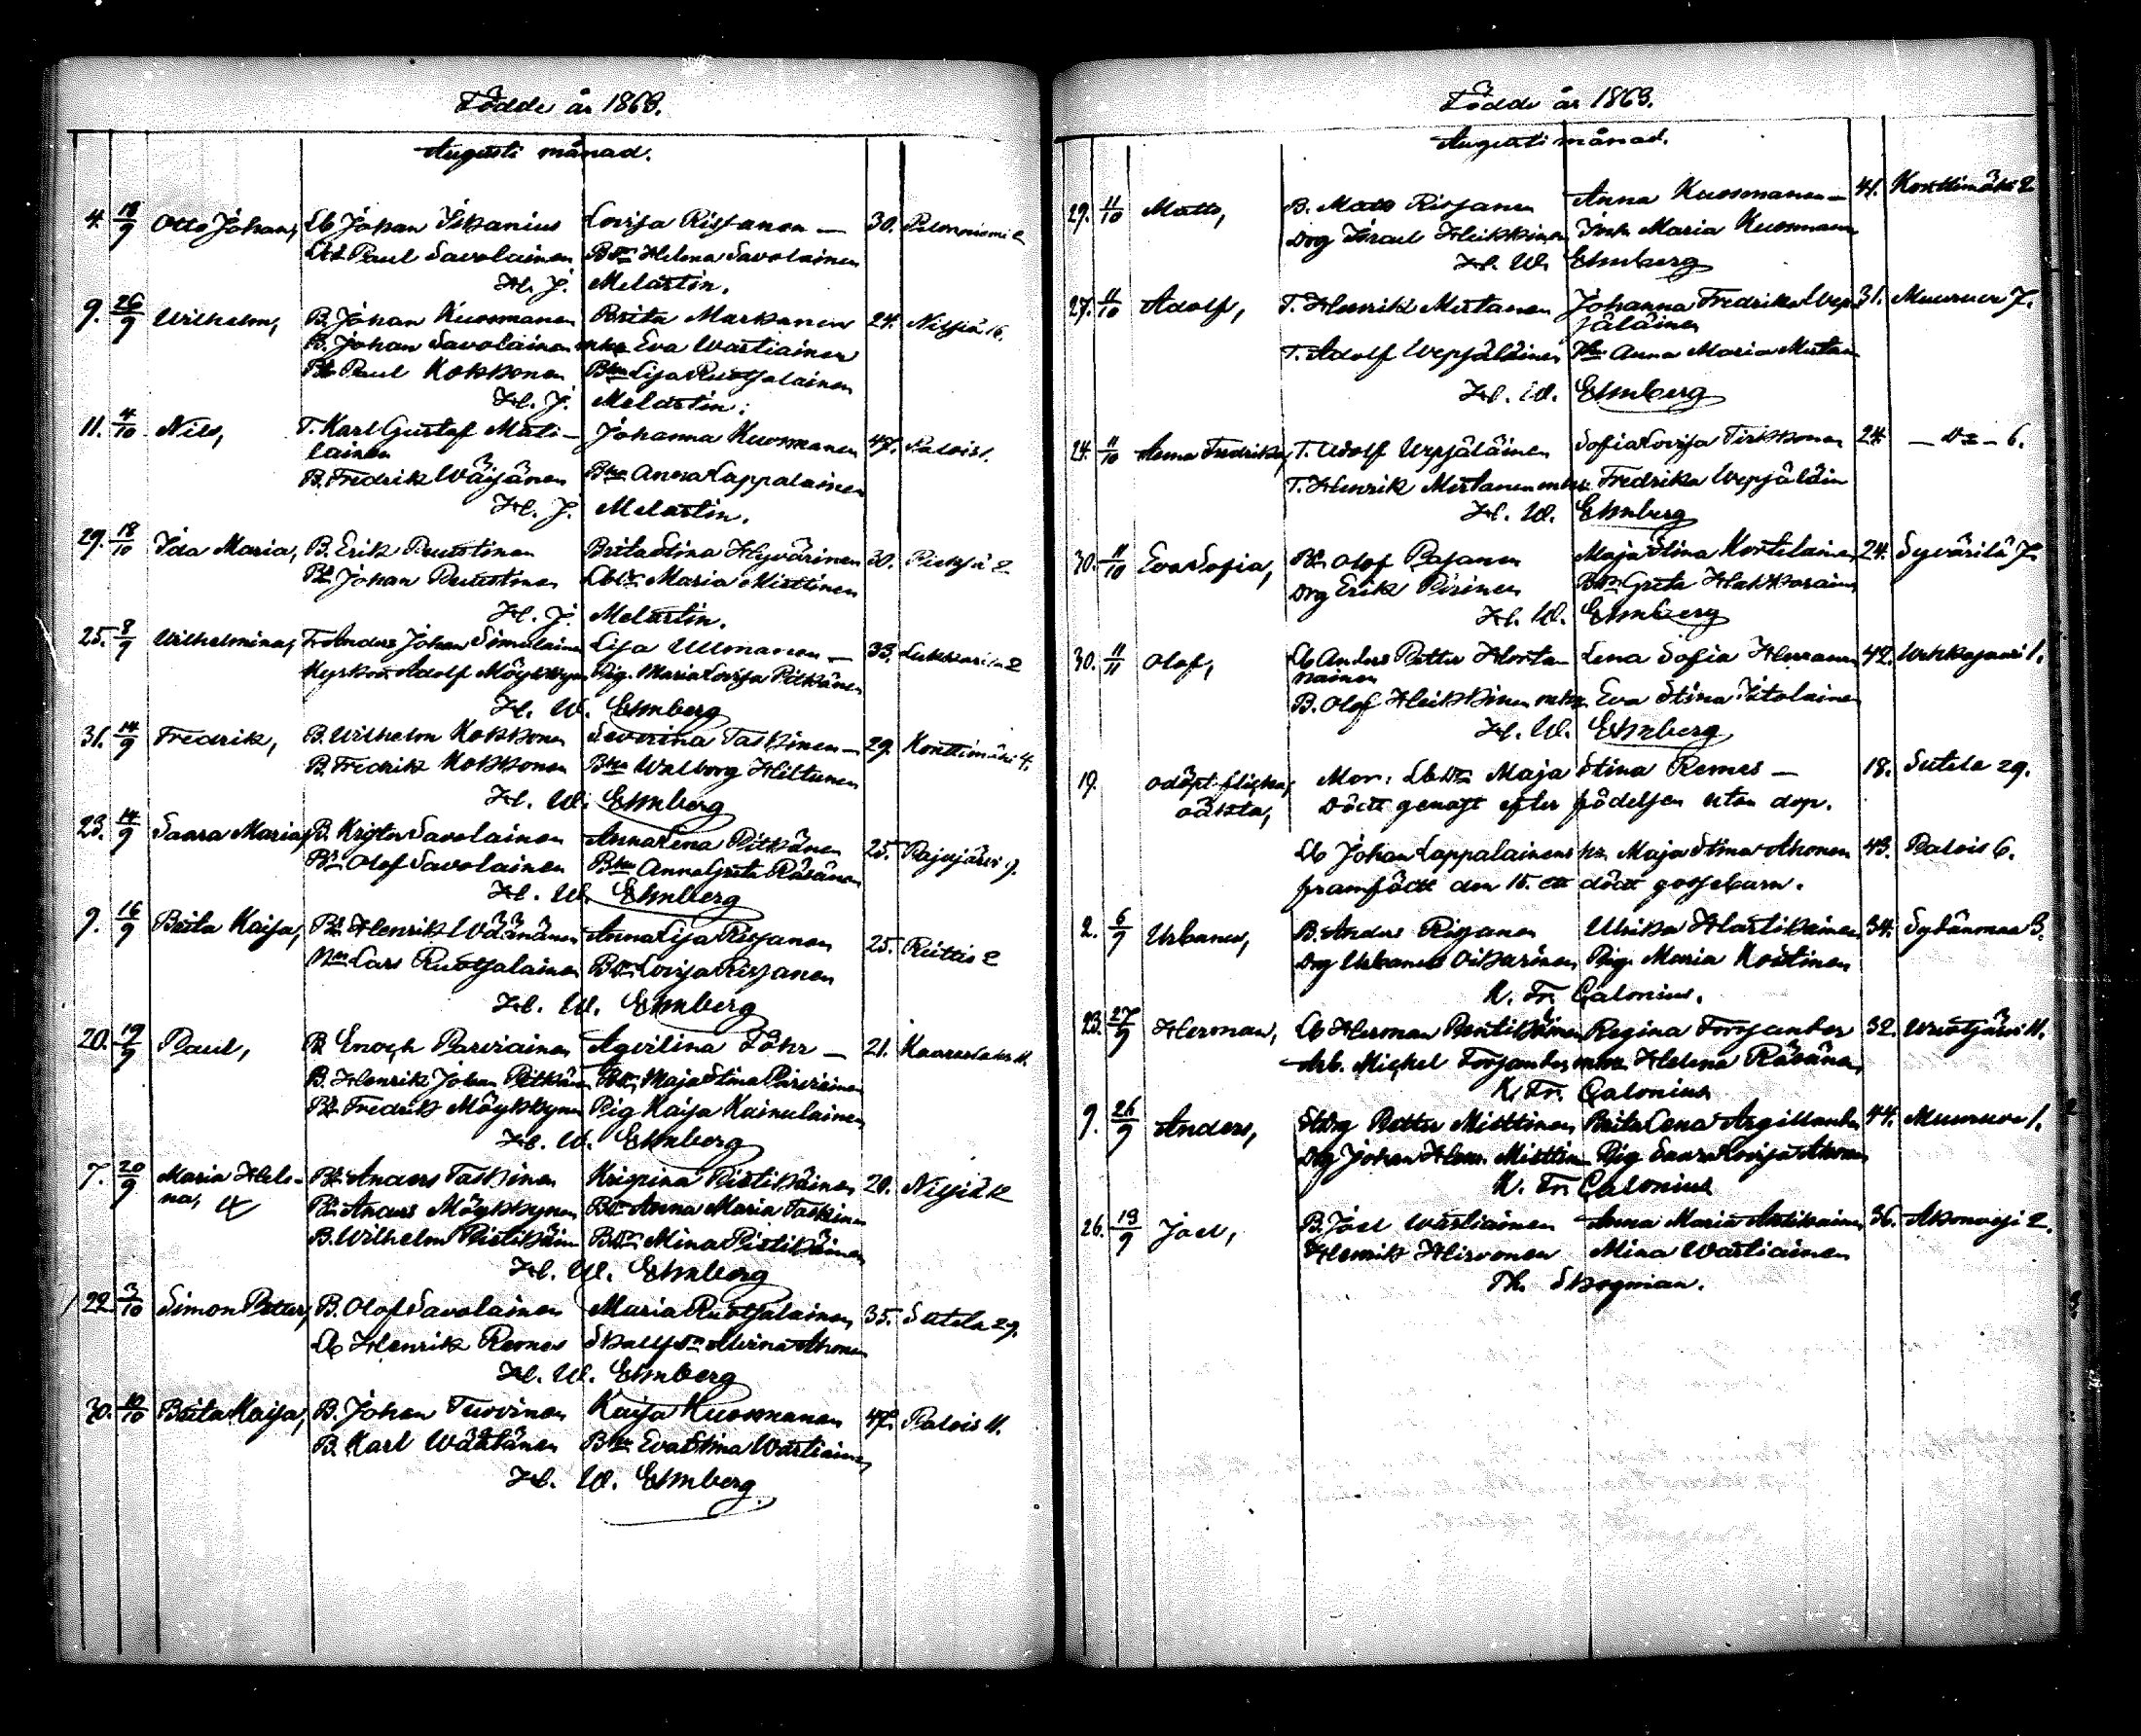 Födde år 1863.
Augusti månad.
4. 18/9 Otto Johan, Lb Johan Iskanius Lovisa Rissanen — 30.
Lbs Paul Savolainen Bdr Helena Savolainen
H. J. Melartin.
9. 26/9 Wilhelm, B. Johan Kuosmanen Brita Markanen 24. Nilsiä 16.
B. Johan Savolainen mhu Eva Wartiainen
Bs Paul Kokkonen Bhu Lisa Ruotsalainen
H. J. Melartin.
11. 4/10 Nils, T. Karl Gustaf Mati- Johanna Kuosmanen 47. Palois 1.
lainen
B. Fredrik Wäisänen Bhu Anna Lappalainen
H. J. Melartin.
29. 18/10 Ida Maria, B. Erik Puustinen Brita Stina Hyvärinen 30.
Bs Johan Puustinen Lbdr Maria Miettinen
H. J. Melartin.
25. 8/9 Wilhelmina, T. Anders Johan Simulainen Lisa Ullmanen — 33. Lukkarila 2
Adolf Möykkynen Pig. Maria Lovisa Pitkänen
H. W. Elmberg
31. 14/9 Fredrik, B. Wilhelm Kokkonen Severina Taskinen — 29. Konttimäki 4.
B. Fredrik Kokkonen Bhu Walborg Hiltunen
H. W. Elmberg
23. 14/9 Saara Maria, B. Krister Savolainen Anna Lena Pitkänen 25. Pajujärvi 9.
Bs Olof Savolainen Bhu Anna Greta Räsänen
H. W. Elmberg
9. 16/9 Brita Kaisa, Bs Henrik Wäänänen Anna Lisa Rissanen 25. Reittis 2
Lars Ruotsalainen Bdr Lovisa Rissanen
H. W. Elmberg
20. 19/9 Paul, B. Enoch Parviainen Agvilina Löhr — 21. Kaareslaks 11.
B. Henrik Johan Pitkänen Bdr Maja Stina Parviainen
Bs Fredrik Möykkynen Pig Kaisa Kainulainen
H. W. Elmberg
7. 20/9 Maria Hele- Bs Anders Taskinen Kristina Pietikäinen 20. Nilsiä
na,
Bs Anders Möykkynen Bdr Anna Maria Taskinen
B. Wilhelm Pietikäin Bdr Mina Pietikäinen
H. W. Elmberg
22. 3/10 Simon Petter, B. Olof Savolainen Maria Ruotsalainen 35. Sutela 29.
Lb Henrik Remes Alvina Ahonen
H. W. Elmberg
30. 10/10 Brita Kaisa, B. Johan Turvinen Kaisa Kuosmanen 47. Palois 11.
B. Karl Väätänen Bhu Eva Stina Wartiainen
H. W. Elmberg
Födde år 1863.
Augusti månad.
29. 11/10 Matts, B. Mats Rissanen Anna Kuosmanen — 41. Konttimäki 2
Drg Israel Heikkinen Maria Kuosmanen
H. W. Elmberg
27. 11/10 Adolf, T. Henrik Mustanen Johanna Fredrika Wep- 31. Muuruvesi 7.
säläinen
T. Adolf Wepsäläinen Anna Maria Mustan
H. W. Elmberg
24. 11/10 Anna Fredrika, T. Adolf Wepsäläinen Sofia Lovisa Tirkkonen 24. — d:o — 6.
T. Henrik Mustanen mhu Fredrika Wepsäläin
H. W. Elmberg
30. 11/10 Eva Sofia, Bs Olof Pasanen Maja Stina Kortelainen 24. Syvärilä 7.
Drg Erik Pirinen Bdr Greta Hakkarainen
H. W. Elmberg
30. 11/11 Olof, Lb Anders Petter Horta- Lena Sofia Heiranen 42. 1.
nainen
B. Olof Heikkinen mhu Eva Stina Jitolainen
H. W. Elmberg
19. Odöpt flicka, Mor: Lbdr Maja Stina Remes — 18. Sutela 29.
oäkta, Död genast efter födelsen utan dop.
Lb Johan Lappalainens hu Maja Stina Ahonen 43. Palois 6.
framfödt den 15. ett dödt gossebarn.
2. 6/9 Urbanus, B. Anders Rissanen Ulrika Hartikainen 34. Sydänmaa 3.
Drg Urbanus Oikarinen Pig. Maria Koistinen
K. Fr. Calonius.
23. 27/9 Herman, Lb Herman Pentikäinen Regina Forssander 32. 11.
Arb. Michel Forssander mhu Helena Räsänen
K. Fr. Calonius
9. 26/9 Anders, Petter Miettinen Brita Lena Argillander 44. Muuruvesi 1.
Drg Johan Henr. Miettin Pig Saara Lovisa Ahonen
K. Fr. Calonius
26. 13/9 Joel, B. Joel Wartiainen Anna Maria Antikainen 36. Akonvesi 2.
Henrik Hirvonen Mina Wartiainen
Th. Skogman.